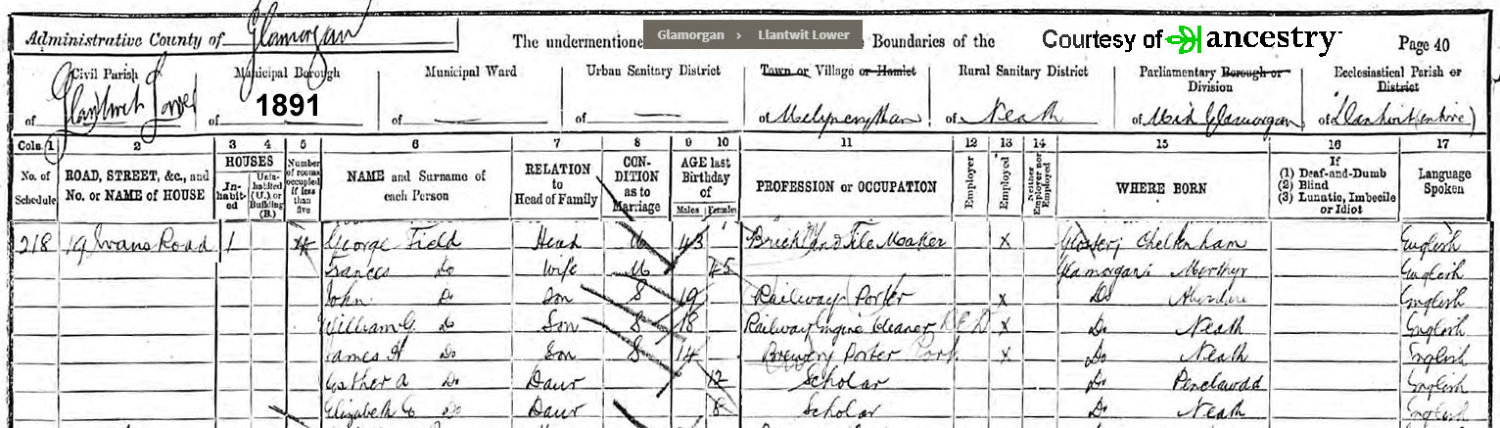 Administrative County of Glamorgan The undermentione Glamorgan › Llantwit Lower Boundaries of the Courtesy of ancestry Page 40
Civil Parish Municipal Borough Municipal Ward Urban Sanitary District Town or Village or Hamlet Rural Sanitary District Parliamentary Borough or Division Ecclesiastical Parish or District
of Llantwit Lower of 1891 of — of — of of Neath of Mid Glamorgan of
Cols. 1 2 3 4 5 6 7 8 9 10 11 12 13 14 15 16 17
No. of Schedule ROAD, STREET, &c., and No. or NAME of HOUSE HOUSES Inhabited Uninhabited (U.) or Building (B.) Number of rooms occupied if less than five NAME and Surname of each Person RELATION to Head of Family CONDITION as to Marriage AGE last Birthday of Males Females PROFESSION or OCCUPATION Employer Employed Neither Employer nor Employed WHERE BORN If (1) Deaf-and-Dumb (2) Blind (3) Lunatic, Imbecile or Idiot Language Spoken
218 19 Evans Road 1 4 George Field Head M 43 Brick and Tile Maker x Gloster; Cheltenham English
Frances Do Wife M 45 Glamorgan; Merthyr English
John Do Son S 19 Railway Porter x Do Aberdare English
William G. Do Son S 18 Railway Engine Cleaner x Do Neath English
James H Do Son S 14 Brewery Porter x Do Neath English
Esther A Do Daur 12 Scholar Do Penclawdd English
Elizabeth C Do Daur 8 Scholar Do Neath English